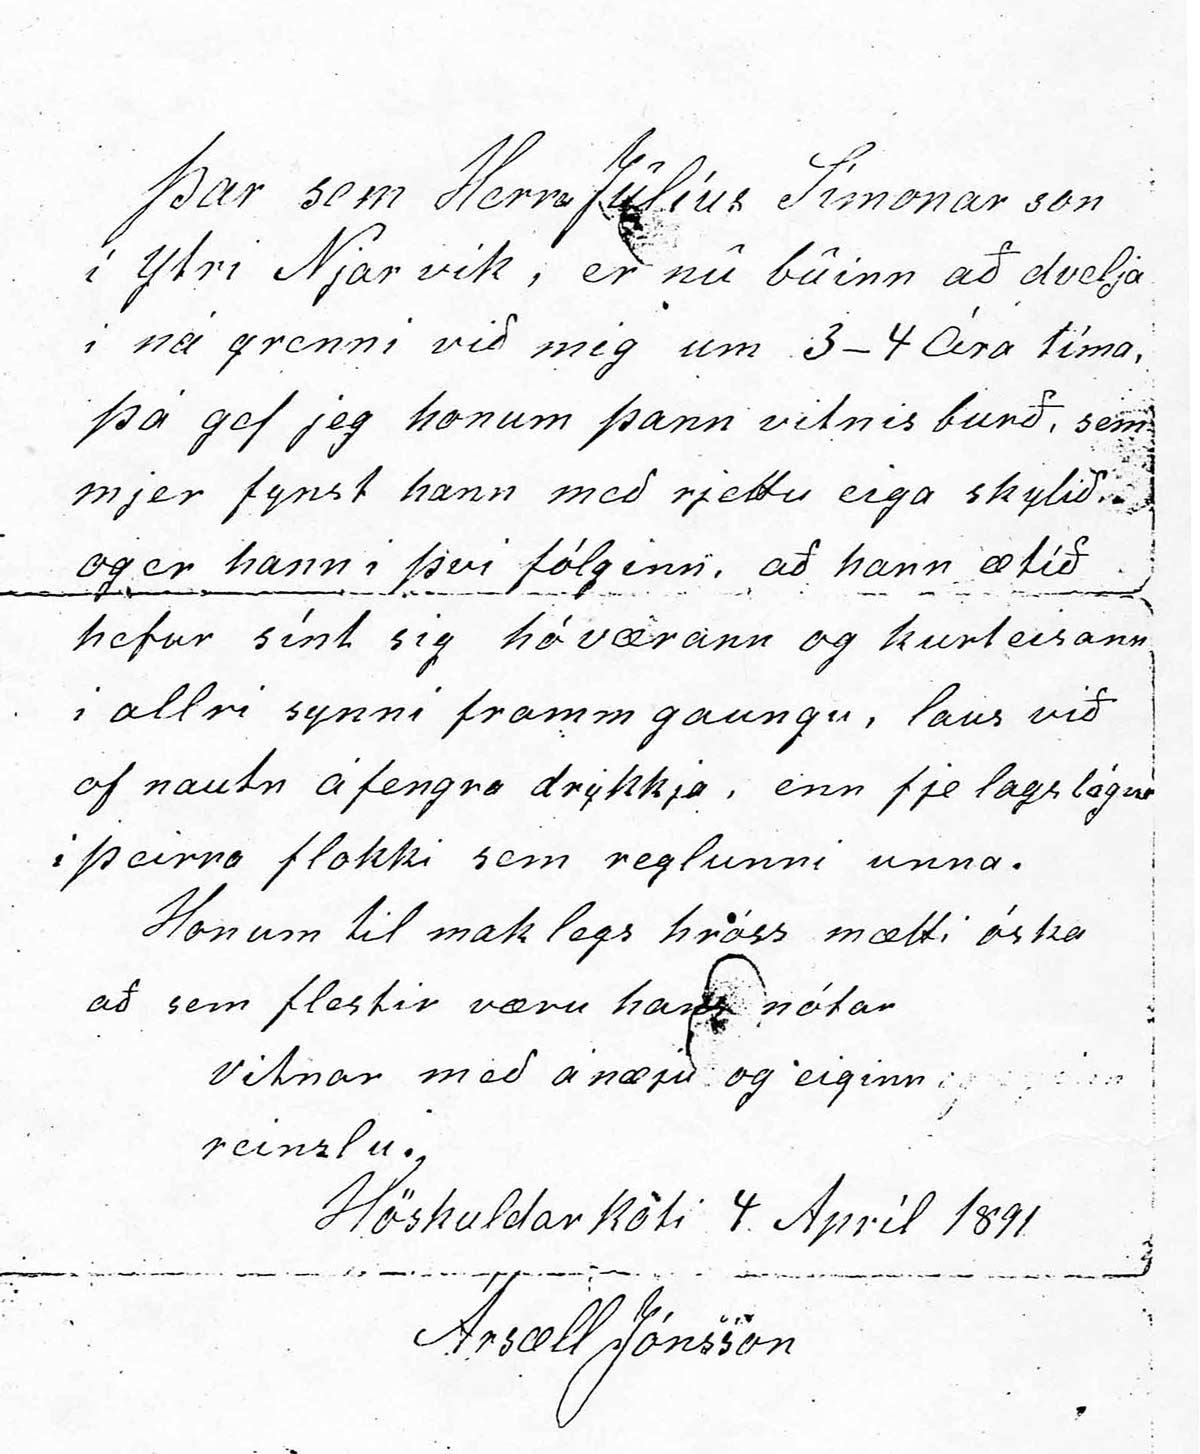 Þar sem Herra Júlíus Símonar son
í Ytri Njarvík, er nû bûinn að dvelja
i ná grenni við mig um 3–4 Ára tíma,
þá gef jeg honum þann vitnis burð, sem
mjer fynst hann með rjettu eiga skylið.
og er hann i því fólginn, að hann ætíð
hefur sínt sig hóværann og kurteisann
i allri synni framm gaungu, laus við
of nautn áfengra drykkja, enn fje lagslágur
i þeirra flokki sem reglunni unna.
Honum til mak legs hróss mætti óska
að sem flestir væru hans nótar
Vitnar með ánæju og eiginn
reinzlu.
Höskuldar Koti 4 Apríl 1891
Ársæll Jónsson